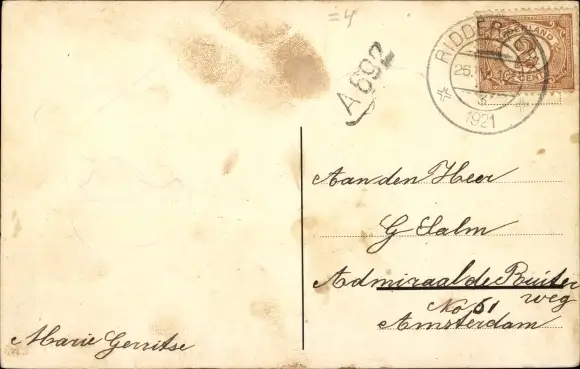 =4
A 692
RIDDERK
25.
1921
NEDERLAND
CENT
Aan den Heer
G Salm
Admiraal de Ruiter
weg
No 61
Amsterdam
Marie Gerritse